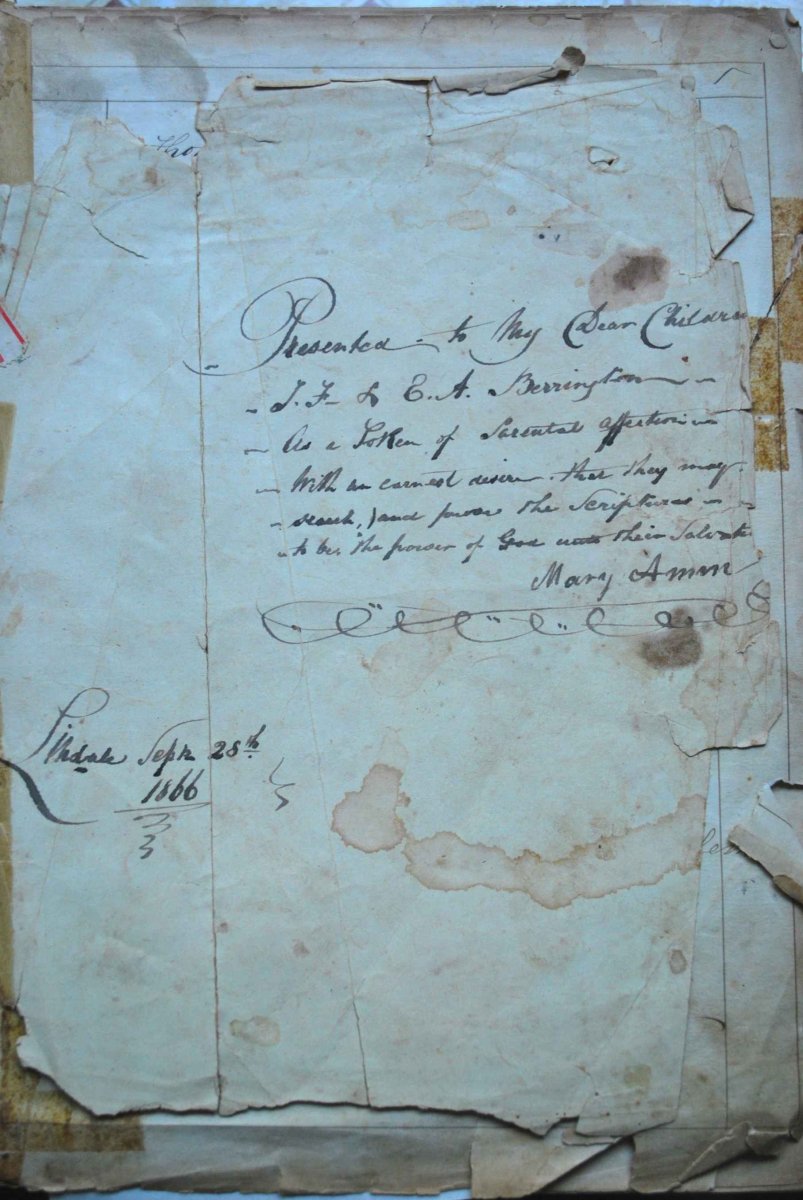 Tho
Presented to My Dear Children
J. F. & E. A. Berrington
As a Token of Parental affection
With an earnest desire that they may
search, and prove the Scriptures
to be the power of God unto their Salvat
Mary Amm
Sept 28th
1866